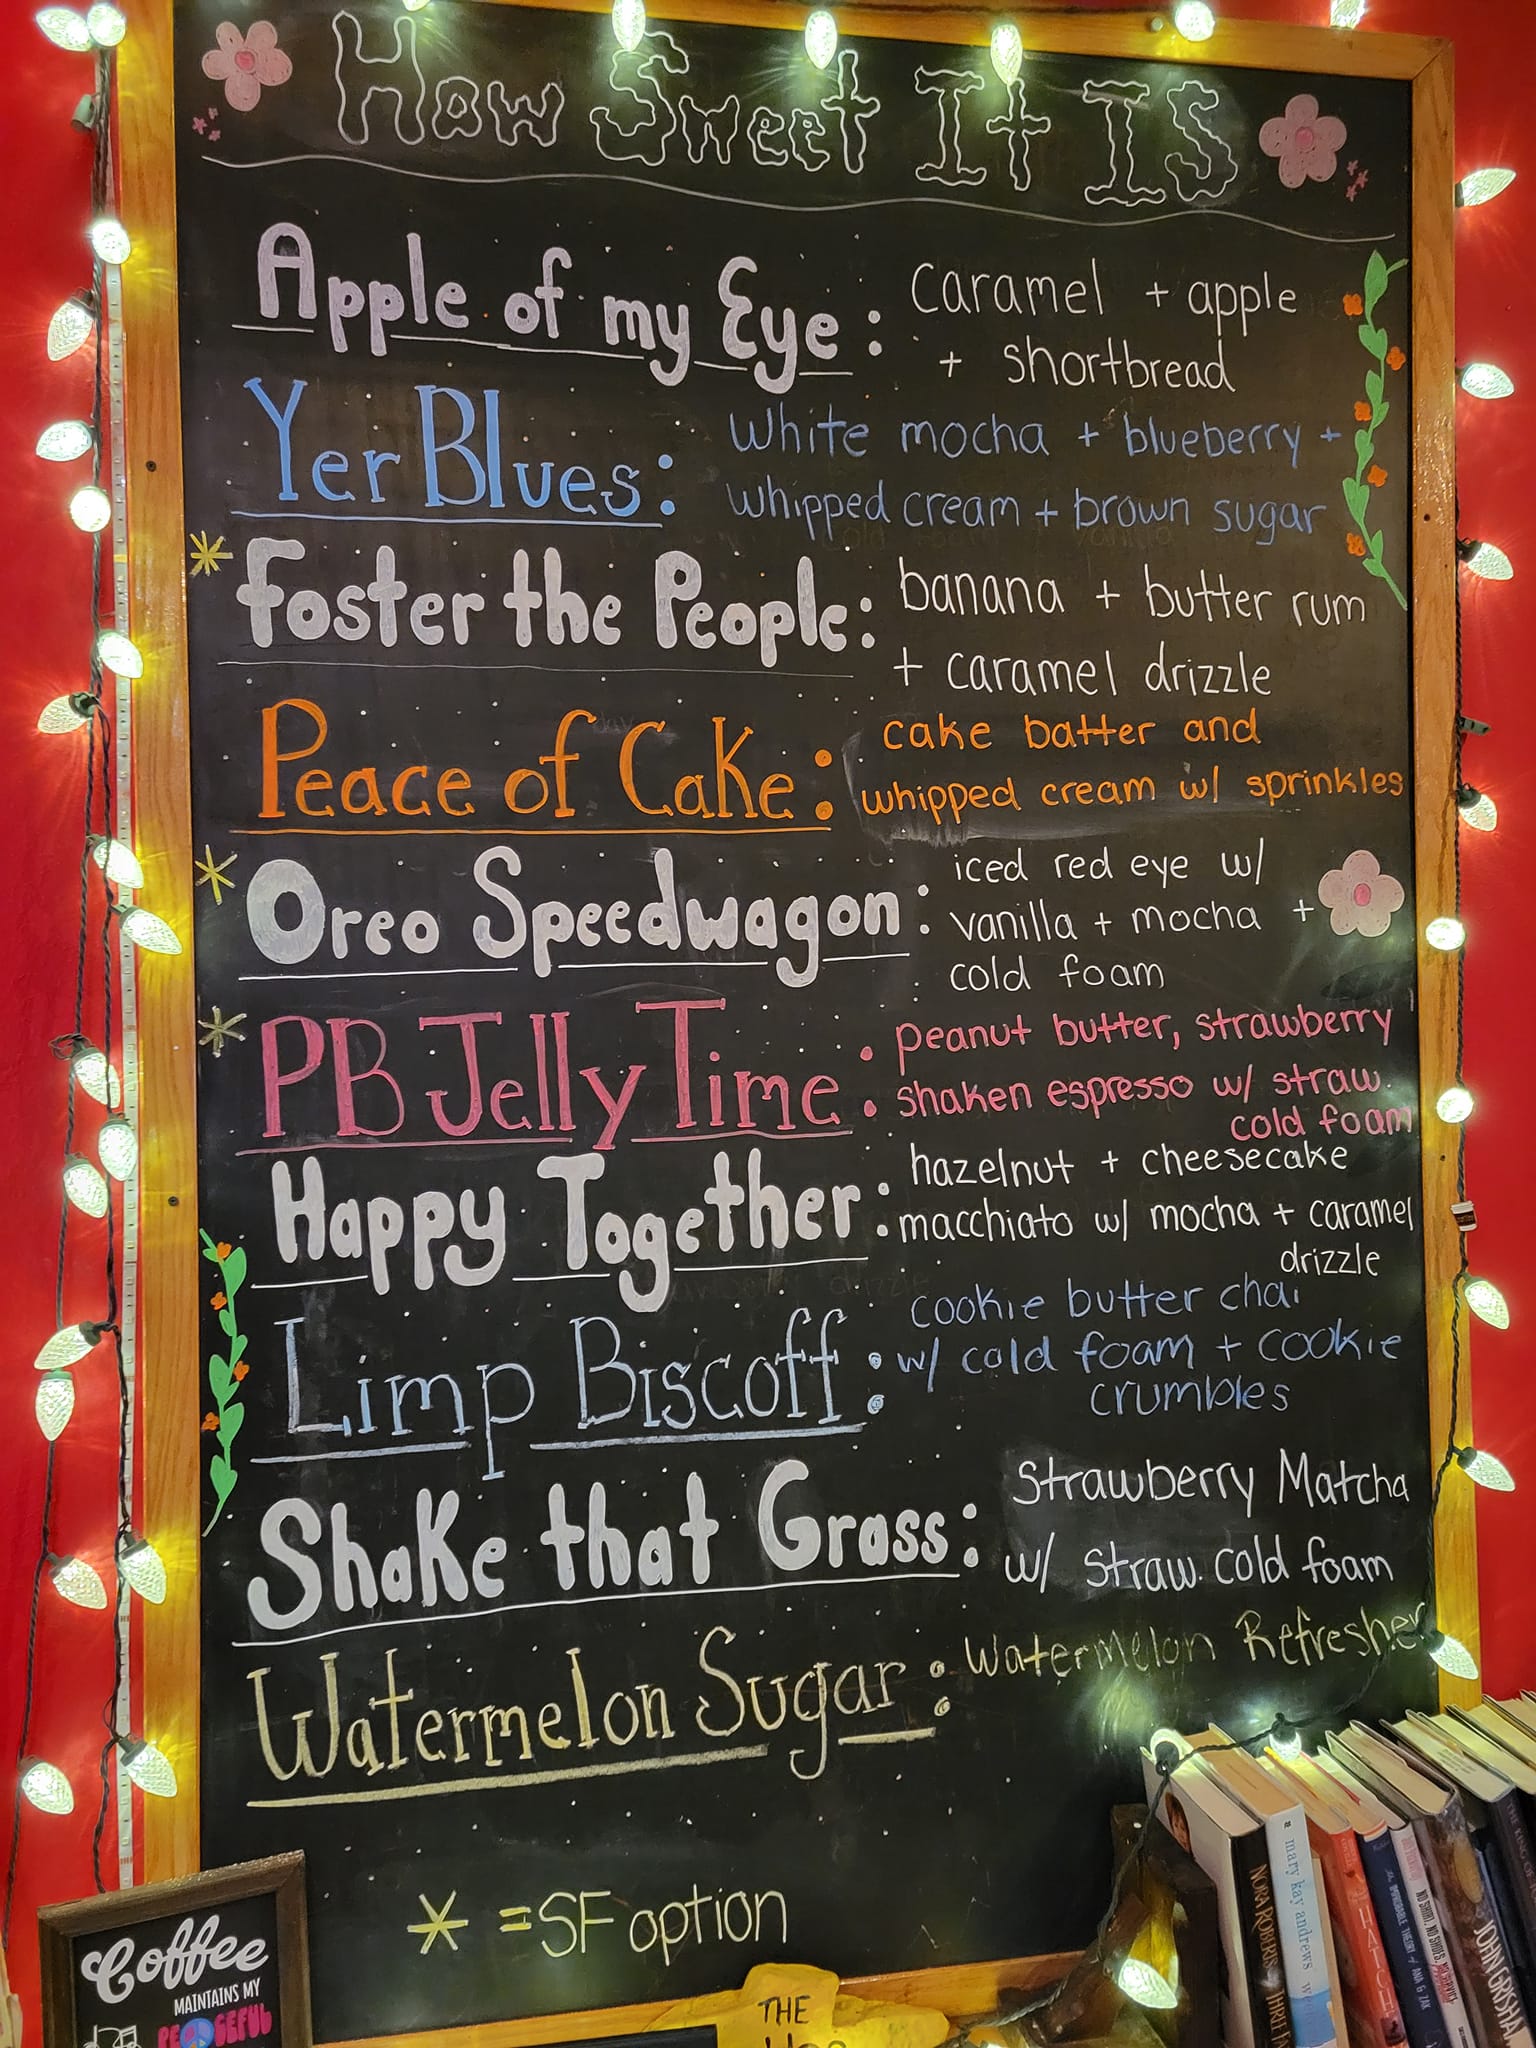 How Sweet It IS
Apple of my Eye: caramel + apple
+ shortbread
Yer Blues: white mocha + blueberry +
whipped cream + brown sugar
* Foster the People: banana + butter rum
+ caramel drizzle
Peace of Cake: cake batter and
whipped cream w/ sprinkles
* Oreo Speedwagon: iced red eye w/
vanilla + mocha +
cold foam
* PB Jelly Time: peanut butter, strawberry
shaken espresso w/ straw.
cold foam
Happy Together: hazelnut + cheesecake
macchiato w/ mocha + caramel
drizzle
Limp Biscoff: cookie butter chai
w/ cold foam + cookie
crumbles
Shake that Grass: Strawberry Matcha
w/ straw. cold foam
Watermelon Sugar: Watermelon Refresher
* = SF option
Coffee
MAINTAINS MY
PEACEFUL
THE
NORA ROBERTS
mary kay andrews
JOHN GRISHAM